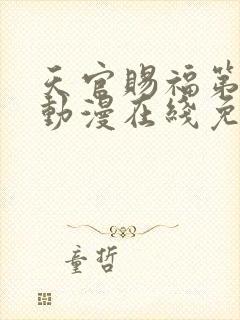 天官賜福第
動漫在綫免
童哲